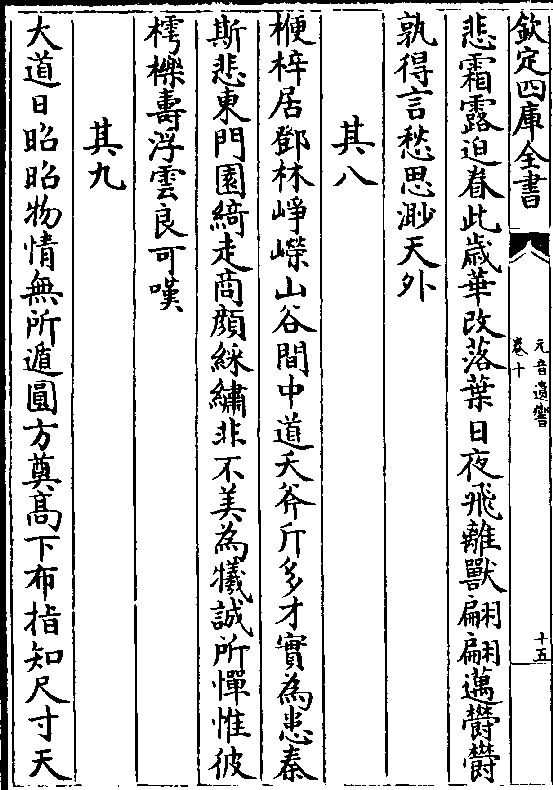 欽定四庫全書
元音遺響
卷十
十五
悲霜露迫眷此歲華改落葉日夜飛離獸翩翩邁鬱鬱
孰得言愁思渺天外
其八
楩梓居鄧林崢嶸山谷間中道夭斧斤多才實為患秦
斯悲東門園綺走商顔綵繡非不美為犧誠所憚惟彼
樗櫟壽浮雲良可嘆
其九
大道日昭昭物情無所遁圓方奠高下布指知尺寸天